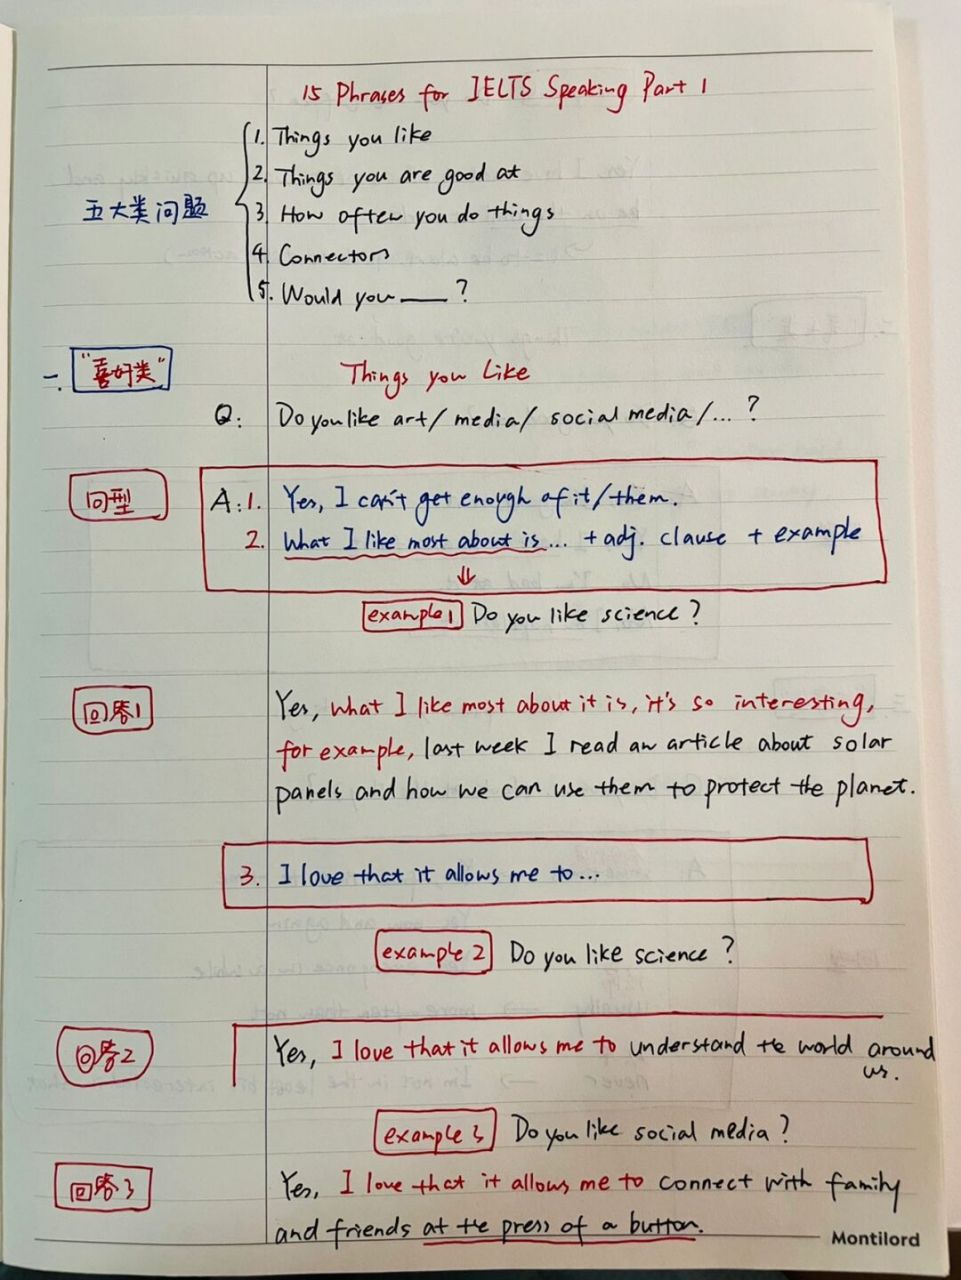 15 Phrases for IELTS Speaking Part 1
五大类问题
1. Things you like
2. Things you are good at
3. How often you do things
4. Connectors
5. Would you ____ ?
一. "喜好类"
Things you Like
Q: Do you like art/ media/ social media/... ?
句型
A: 1. Yes, I can't get enough of it/them.
2. What I like most about is ... + adj. clause + example
↓
example 1 Do you like science ?
回答1
Yes, what I like most about it is, it's so interesting,
for example, last week I read an article about solar
panels and how we can use them to protect the planet.
3. I love that it allows me to ...
example 2 Do you like science ?
回答2
Yes, I love that it allows me to understand the world around
us.
example 3 Do you like social media ?
回答3
Yes, I love that it allows me to connect with family
and friends at the press of a button.
Montilord